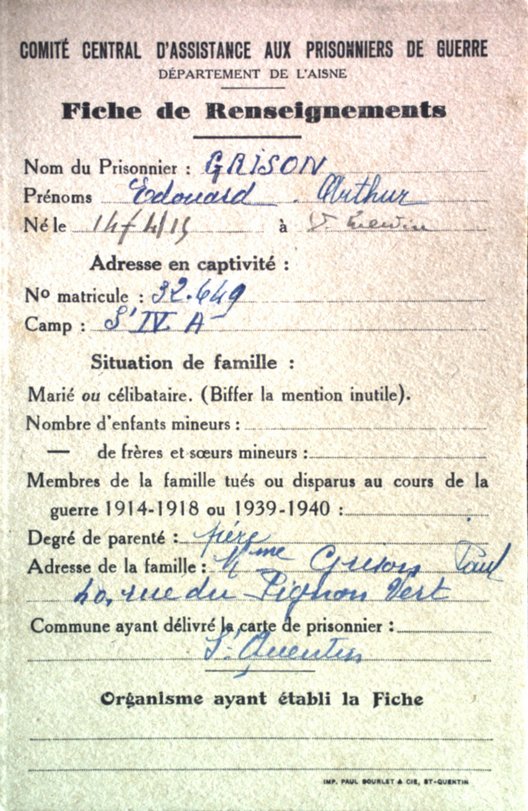 COMITÉ CENTRAL D'ASSISTANCE AUX PRISONNIERS DE GUERRE
DÉPARTEMENT DE L'AISNE
Fiche de Renseignements
Nom du Prisonnier : GRISON
Prénoms Edouard . Arthur
Né le 14/4/15 à St Quentin
Adresse en captivité :
No matricule : 32.649
Camp : St IV A
Situation de famille :
Marié ou célibataire. (Biffer la mention inutile).
Nombre d'enfants mineurs :
— de frères et sœurs mineurs :
Membres de la famille tués ou disparus au cours de la
guerre 1914-1918 ou 1939-1940 :
Degré de parenté :
Adresse de la famille : Mme Grison Paul
40, rue du Pignon Vert
Commune ayant délivré la carte de prisonnier :
St Quentin
Organisme ayant établi la Fiche
IMP. PAUL BOURLET & CIE, ST-QUENTIN